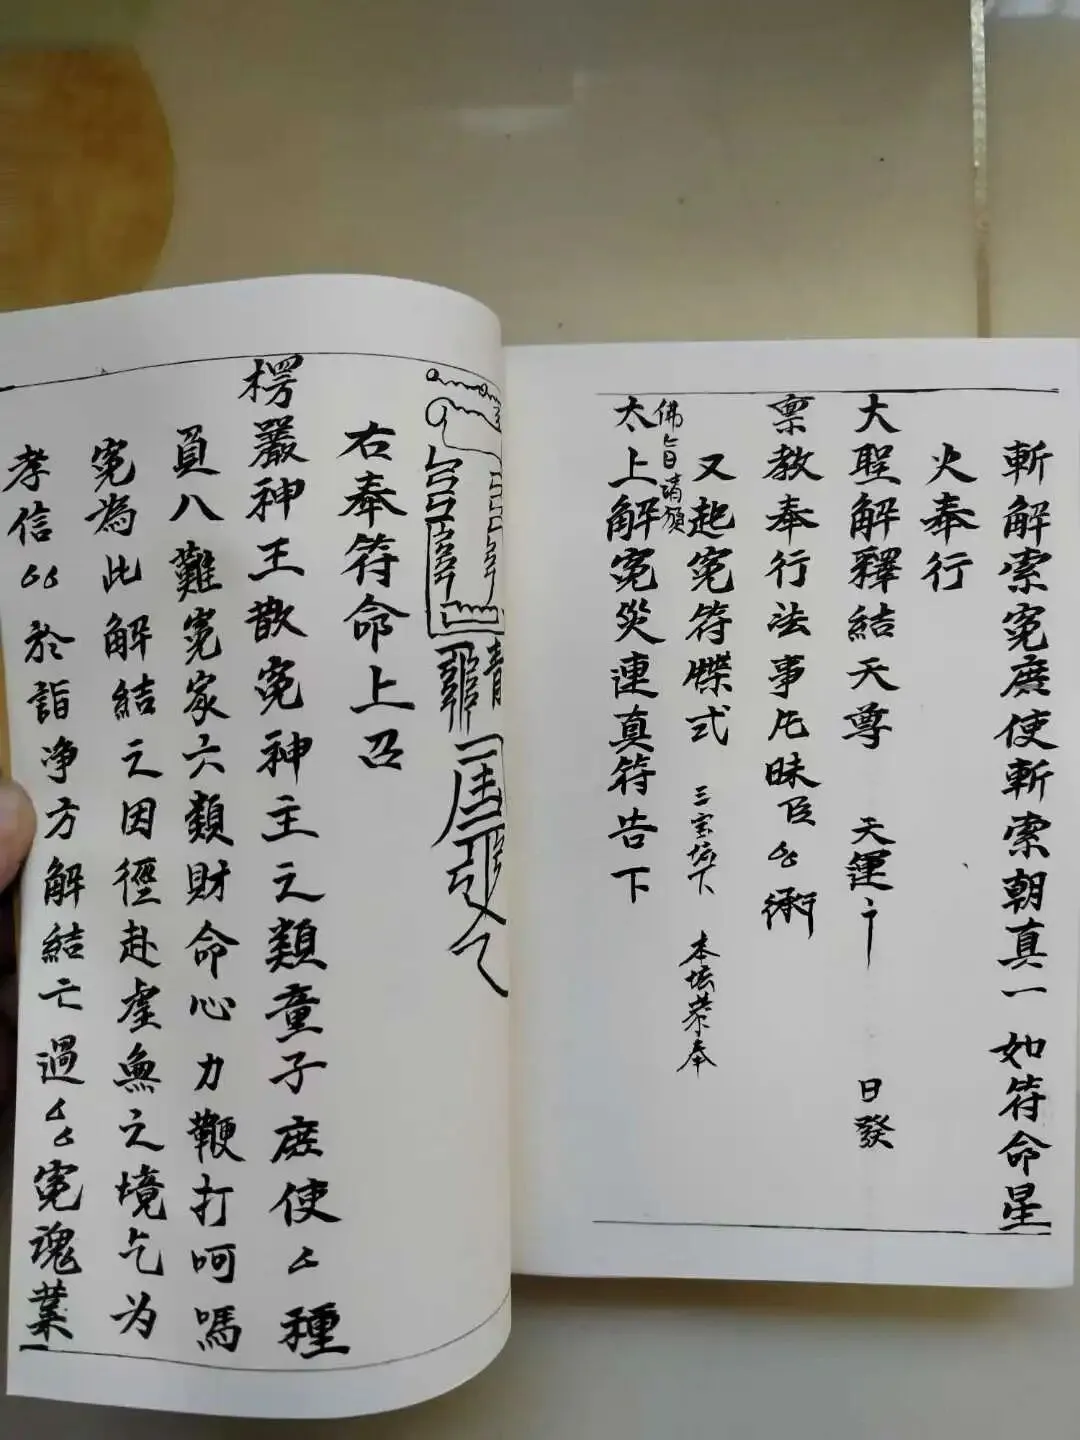 斬解索寃庻使斬索朝真一如符命星
火奉行
大聖解釋結天尊 天運 日發
禀教奉行法事 昧臣 術
又起寃符牒式 三宝坛下 本坛恭奉
佛旨請頒
太上解寃災連真符告下
右奉符命上召
楞嚴神王散寃神主之類童子庻使 種
員八難寃家六類財命心力鞭打呵嗎
寃為此解結之因徑赴虗無之境乞为
孝信 於詣净方解結亡過 寃魂業